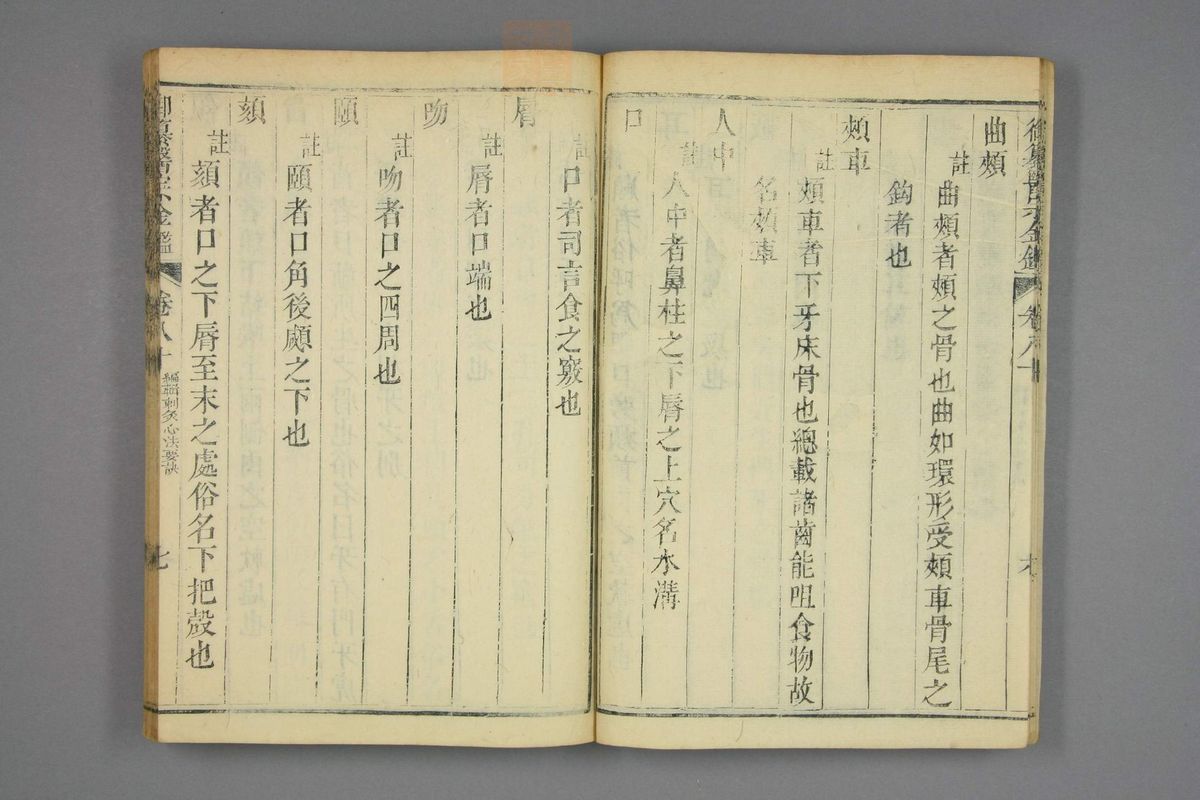 曲頰
註曲頰者頰之骨也曲如環形受頰車骨尾之
鈎者也
頰車
註頰車者下牙床骨也總載諸齒能咀食物故
名頰車
人中
註人中者鼻柱之下脣之上穴名水溝
口
註口者司言食之竅也
脣
註脣者口端也
吻
註吻者口之四周也
頤
註頤者口角後䫇之下也
頦
註頦者口之下脣至末之處俗名下把殼也
卷八十
編輯刺灸心法要訣
七